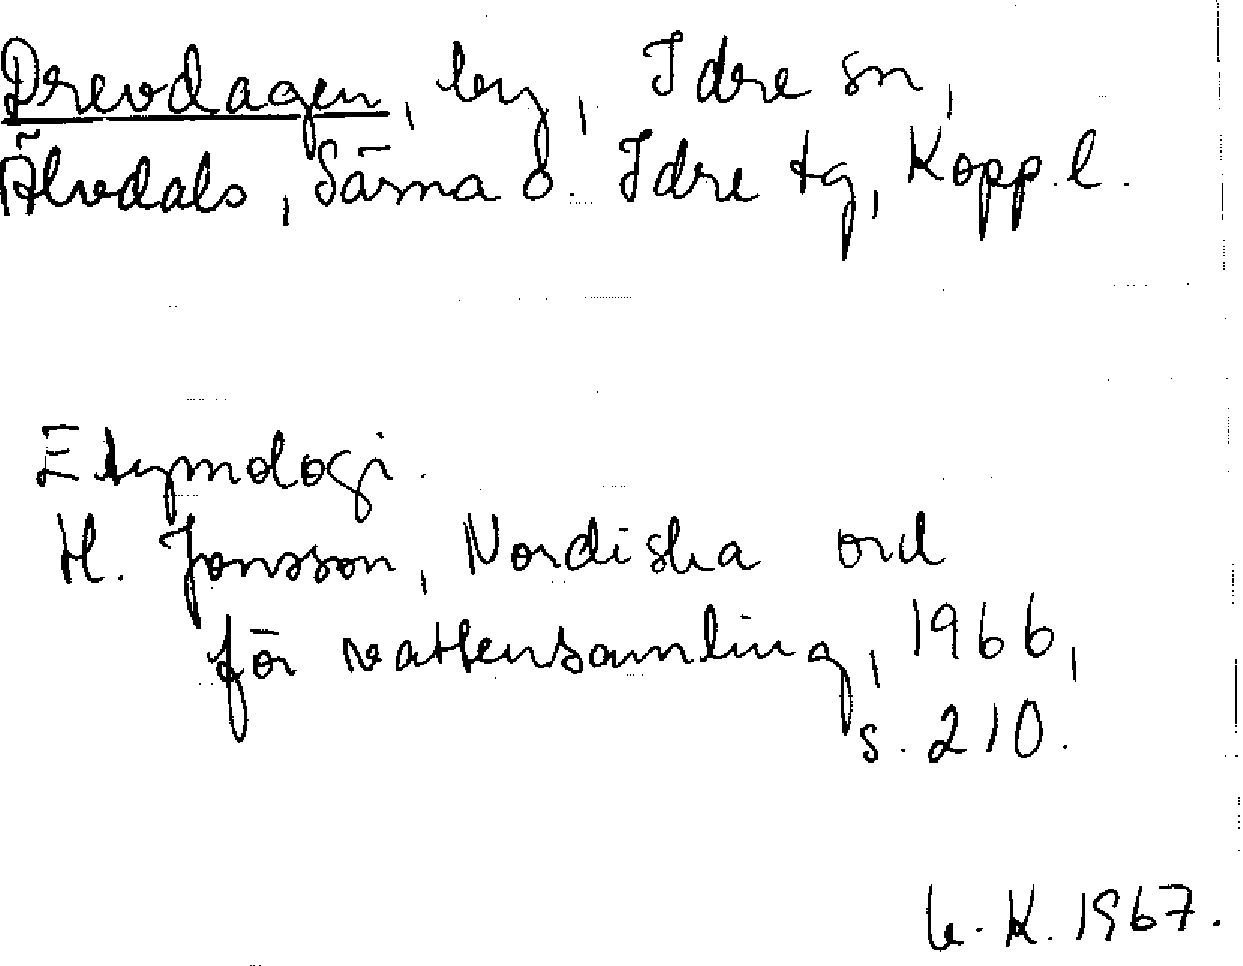 Drevdagen, by, Idre sn,
Älvdals, Särna o. Idre tg, Kopp.l.
Etymologi.
H. Jonsson, Nordiska ord
för vattensamling, 1966,
s. 210.
K. 1967.